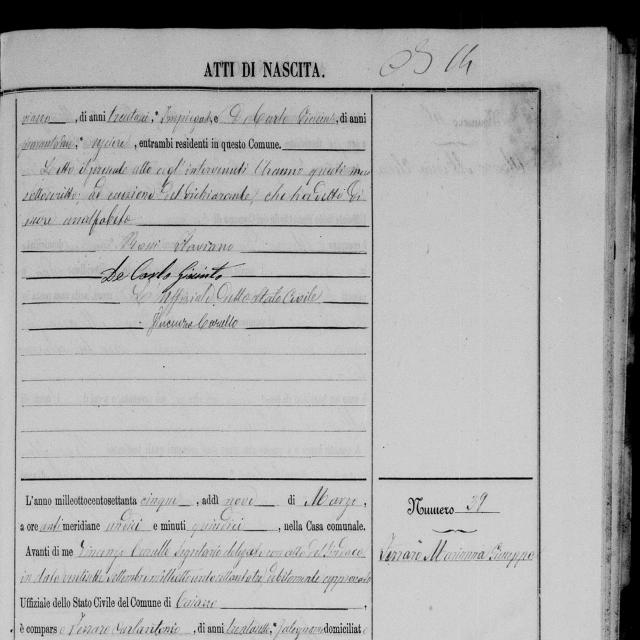 14
ATTI DI NASCITA.
, di anni trentasei, Impiegato, e De Carlo Giacinto, di anni
, entrambi residenti in questo Comune.
Letto il presente atto agli intervenuti
sottoscritto, ad eccezione del dichiarante, che ha detto di
analfabeta
Flaviano
De Carlo Giacinto
L'Uffiziale dello Stato Civile
Vincenzo Covello
L'anno milleottocentosettanta cinque, addì nove di Marzo,
a ore antimeridiane undici e minuti quindici, nella Casa comunale.
Avanti di me Vincenzo Covello Segretario delegato con atto del Sindaco
in data ventisette Settembre debitamente approvato
Uffiziale dello Stato Civile del Comune di
è comparso Ferraro Carlantonio, di anni trentasette, falegname domiciliato
Numero 39
Ferraro Marianna Giuseppa